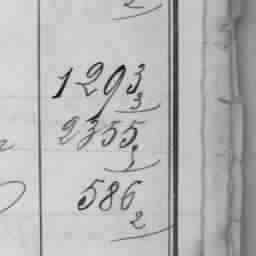 2
1293
3
2355
1
586
2